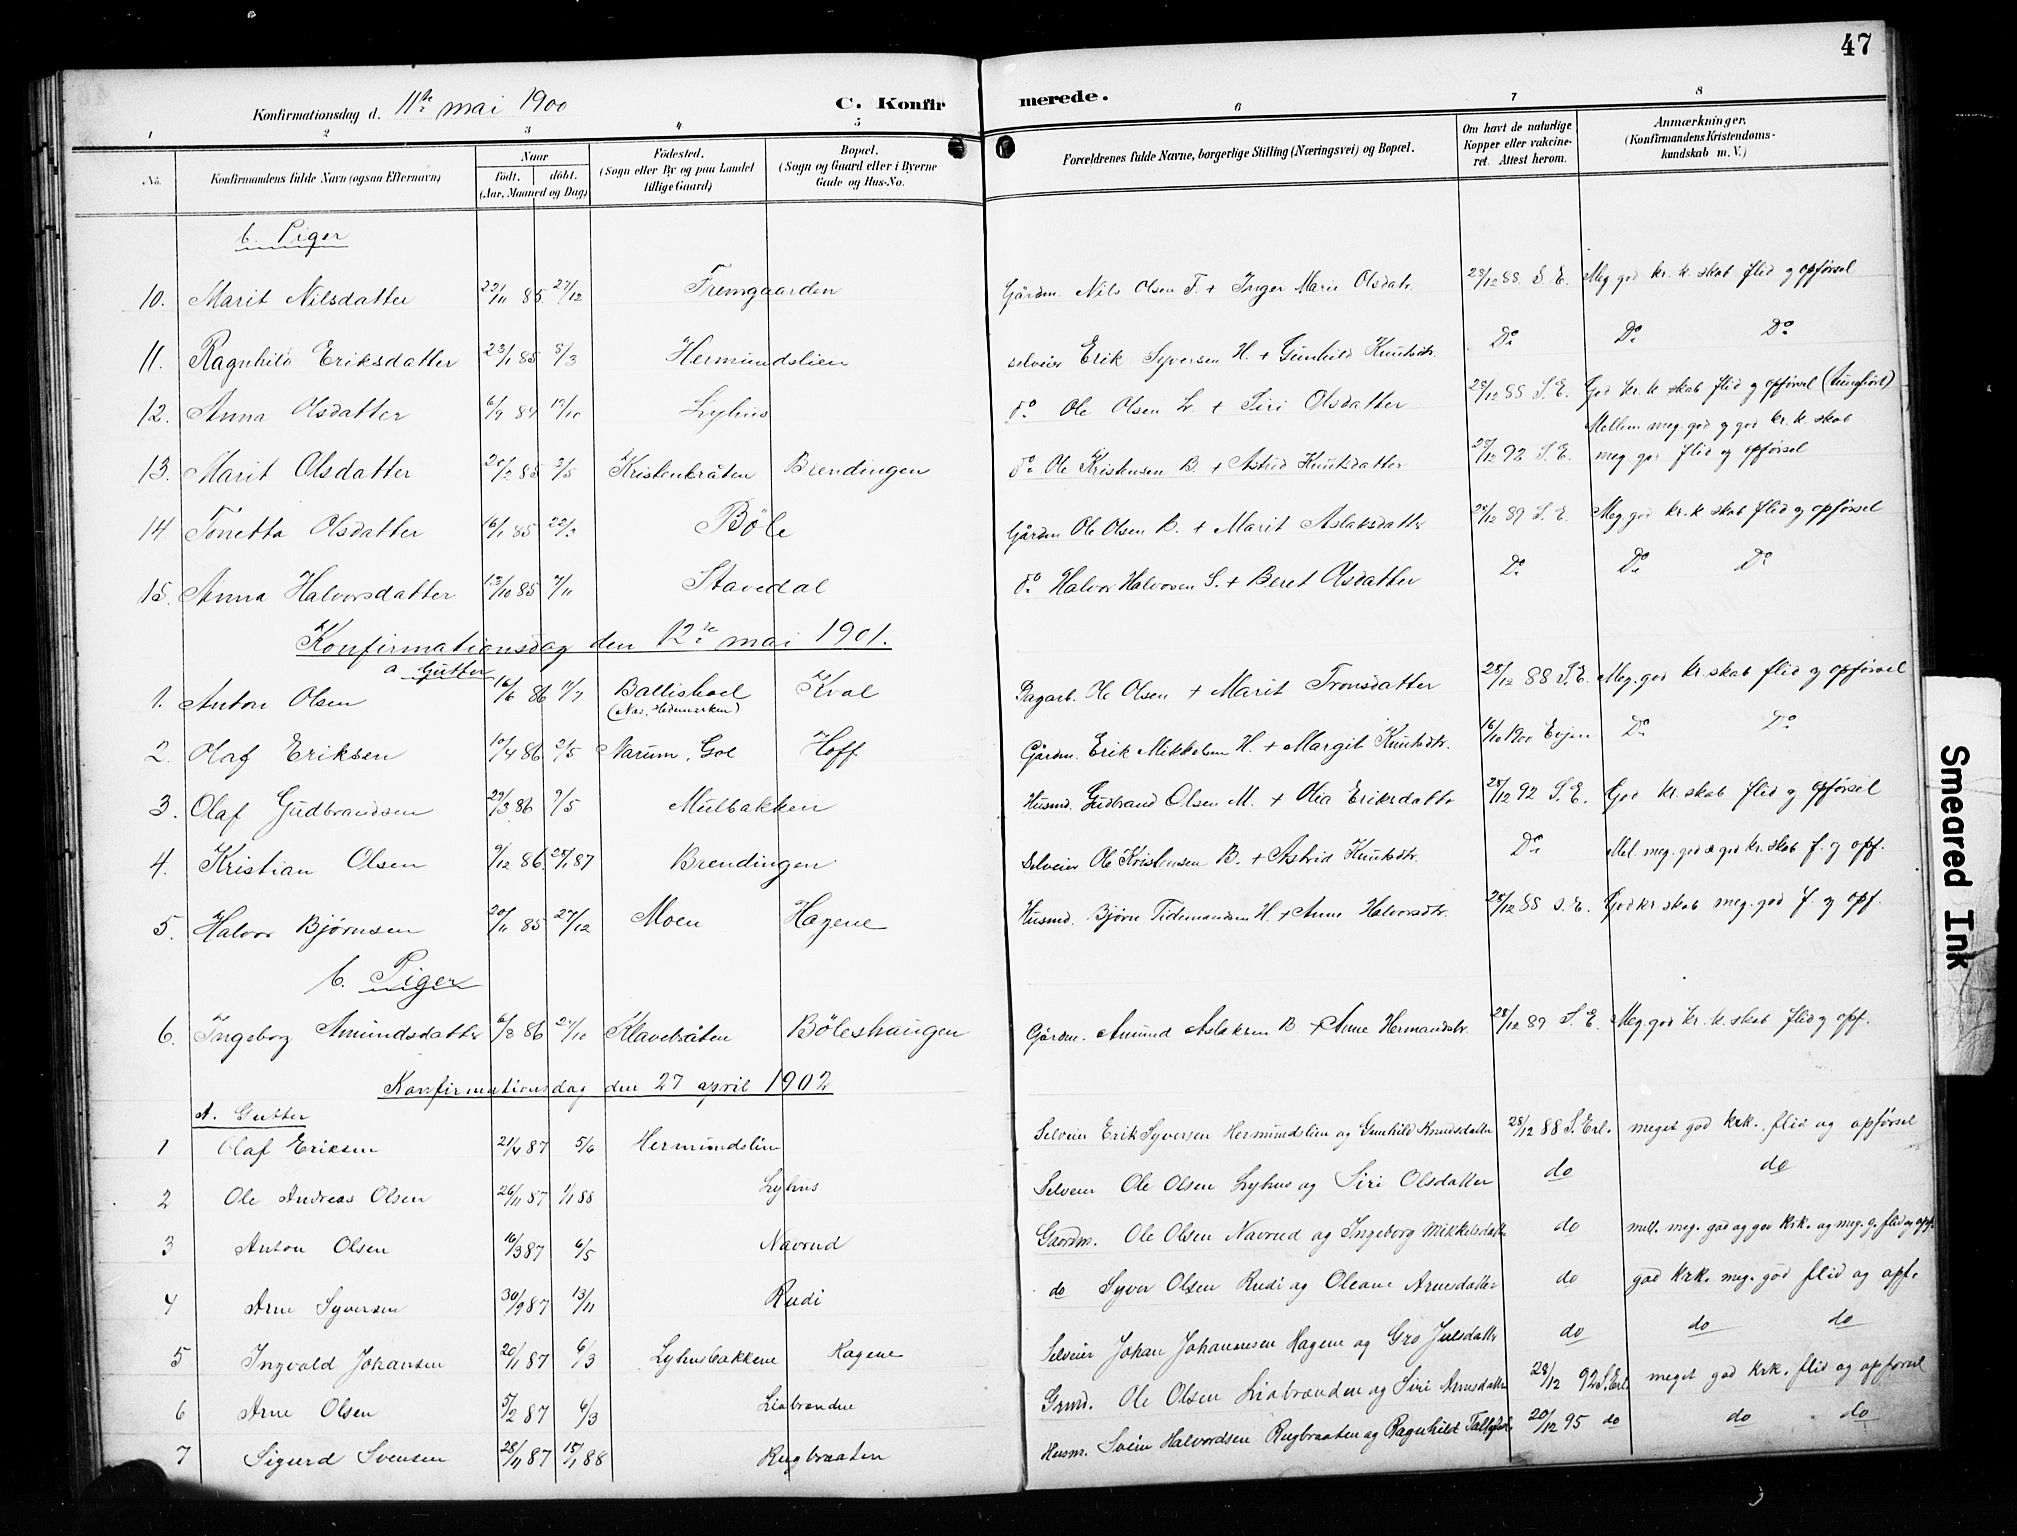 47
Konfirmationsdag d. 11te mai 1900 C. Konfirmerede.
1 2 3 4 5 6 7 8
No. Konfirmandens fulde Navn (ogsaa Efternavn) Naar Født. døbt. (Aar, Maaned og Dag) Fødested. (Sogn eller By og paa Landet tillige Gaard) Bopæl. (Sogn og Gaard eller i Byerne Gade og Hus-No. Forældrenes fulde Navne, borgerlige Stilling (Næringsvei) og Bopæl. Om havt de naturlige Kopper eller vakcineret. Attest herom. Anmærkninger. (Konfirmandens Kristendomskundskab m. V.)
b. Piger
10. Marit Nilsdatter 22/11 85. 27/12 Fremgaarden Gårdm. Nils Olsen F. + Inger Marie Olsdatr. 28/12 88 S. E. Meg. god kr. k. skab flid og opførsel
11. Ragnhild Eriksdatter 23/1 85 8/3 Hermundslien selveier Erik Syversen H. + Gunhild Knutsdtr. Do Do Do
12. Anna Olsdatter 6/9 84 19/10 Lyhus do Ole Olsen L. + Siri Olsdatter 28/12 88 S. E. God kr. k. skab flid og opførsel (tunghørt)
13. Marit Olsdatter 20/2 85 3/5 Kristenbråten Brendingen do Ole Kristensen B. + Astrid Knutsdatter 28/12 92 S. E. Mellem meg. god og god kr. k. skab meg. god flid og opførsel
14. Tonetta Olsdatter 16/1 85 22/3 Böle Gårdm Ole Olsen B. + Marit Aslaksdatr 28/12 89 S. E. Meg. god kr. k. skab flid og opførsel
15. Anna Halvorsdatter 13/10 85 7/11 Stavedal do Halvor Halvorsen S. + Beret Olsdatter Do Do Do
Konfirmationsdag den 12te mai 1901.
a Gutter
1. Anton Olsen 16/6 86 11/7 Ballishoel (Nas. Hedemarken) Kval Dagarb. Ole Olsen + Marit Tronsdatter 28/12 88 S. E. Meg. god kr. skab flid og opførsel
2. Olaf Eriksen 10/4 86 2/5 Narum, Gol Hoff Gårdm. Erik Mikkelsen H. + Margit Knutsdtr. 16/10 1900 Evjen Do Do
3. Olaf Gudbrandsen 29/3 86 9/5 Mulbakken Husmd. Gudbrand Olsen M. + Olia Eriksdattr 28/12 92 S. E. God kr. skab flid og opførsel
4. Kristian Olsen 9/12 86. 25/1 87 Brendingen Selveier Ole Kristensen B. + Astrid Knutsdtr. Do Mel. meg. god og god kr. skab f. og opf.
5. Halvor Bjørnsen 20/11 85 27/12 Moen Hagene Husmd. Bjørn Tidemandsen H. + Anne Halvorsdtr. 28/12 88 S. E. God kr skab meg. god f. og opf.
b. Piger
6. Ingeborg Amundsdatter 6/8 86 24/10 Klavebråten Böleshaugen Gårdm. Amund Aslaksen B. + Anne Hermandsdtr. 28/12 89 S. E. Meg. god kr. k. skab flid og opf.
Konfirmationsdag den 27 april 1902
A. Gutter
1 Olaf Eriksen 21/4 87 5/6 Hermundslien Selveier Erik Syversen Hermundslien og Gunhild Knudsdatter 28/12 88 S. Erl. meget god krk. flid og opførsel
2 Ole Andreas Olsen 26/11 87 1/1 88 Lyhus Selveier Ole Olsen Lyhus og Siri Olsdatter do do
3 Anton Olsen 16/3 87 6/5 Navrud Gaardm. Ole Olsen Navrud og Ingeborg Mikkelsdatter do mell. meg. god og god krk. og meg. g. flid og opf.
4 Arne Syversen 30/9 87 13/11 Rudi do Syver Olsen Rudi og Oleane Arnesdatter do god krk. meg. god flid og opf.
5 Ingvald Johansen 20/1 87 6/3 Lyhusbakkene Hagene Selveier Johan Johannesen Hagene og Gro Julsdatter do do do
6 Arne Olsen 5/2 87 6/3 Liabrenden Grmd. Ole Olsen Liabrenden og Siri Arnesdatter 28/12 92 S. Erl. meget god krk. flid og opførsel
7 Sigurd Svensen 28/11 87 15/1 88 Rugbraaten Husm. Svein Halvordsen Rugbraaten og Ragnhild 20/12 95 do do do
Smeared Ink